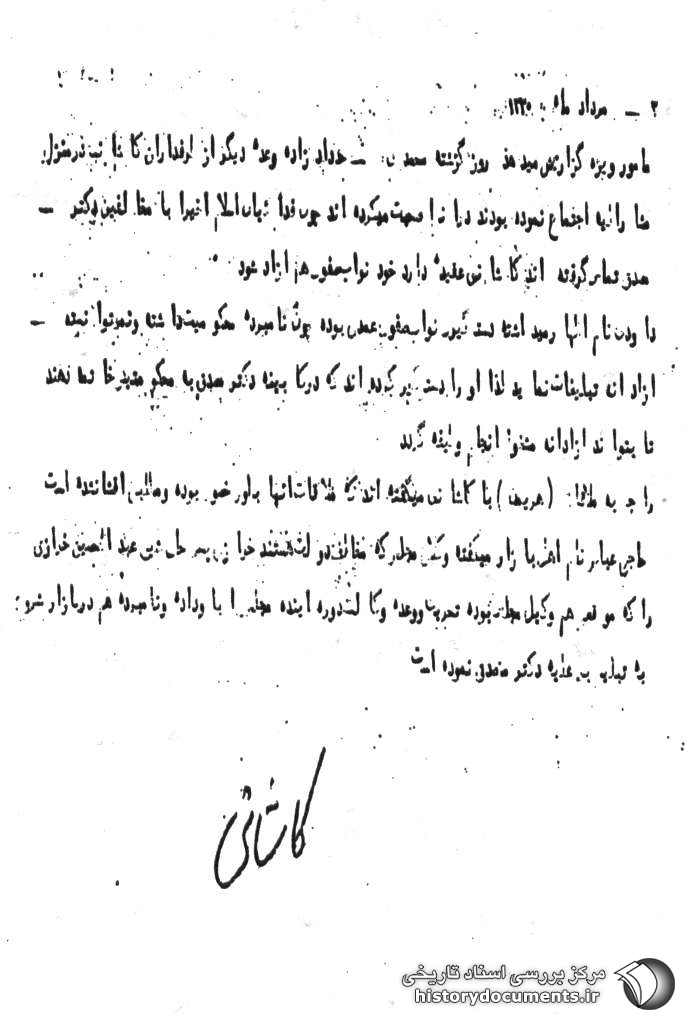 ۲ – مرداد ماه ۱۳۳۰
مامور ویژه گزارش میدهد روز گذشته – حداد زاده وعده دیگر از طرفداران کاشانی در منزل
مشارالیه اجتماع نموده بودند و صحبت میکرده اند چون فدائیان اسلام اخیرا با مخالفین دکتر –
مصدق تماس گرفته اند کاشانی عقیده دارد خود نواب صفوی هم ازاد شود
نام انها دستگیری نواب صفوی عمدی بوده چون نامبرده محکومیت داشته ونمیتوانسته –
ازادانه تبلیغات نماید لذا او را دستگیر کرده اند که در کابینه دکتر مصدق به محکومیت خاتمه دهند
تا بتواند ازادانه مشغول انجام وظیفه گردد
راجع به ملاقات (هریمن) با کاشانی میگفته اند که ملاقات انها بطور خصوصی بوده ومطالبی افشا نشده است
حاجی عباس نام اهل بازار میگفته وکلای مجلس که مخالف دولت هستند خرازی پسر حاجی عبدالحسین خرازی
را که موقعی هم وکیل مجلس بوده تحریک ووعده وکالت دوره اینده مجلس را باو داده ونامبرده هم در بازار شروع
به تبلیغ علیه دکتر مصدق نموده است
کاشانی
مرکز بررسی اسناد تاریخی
historydocuments.ir